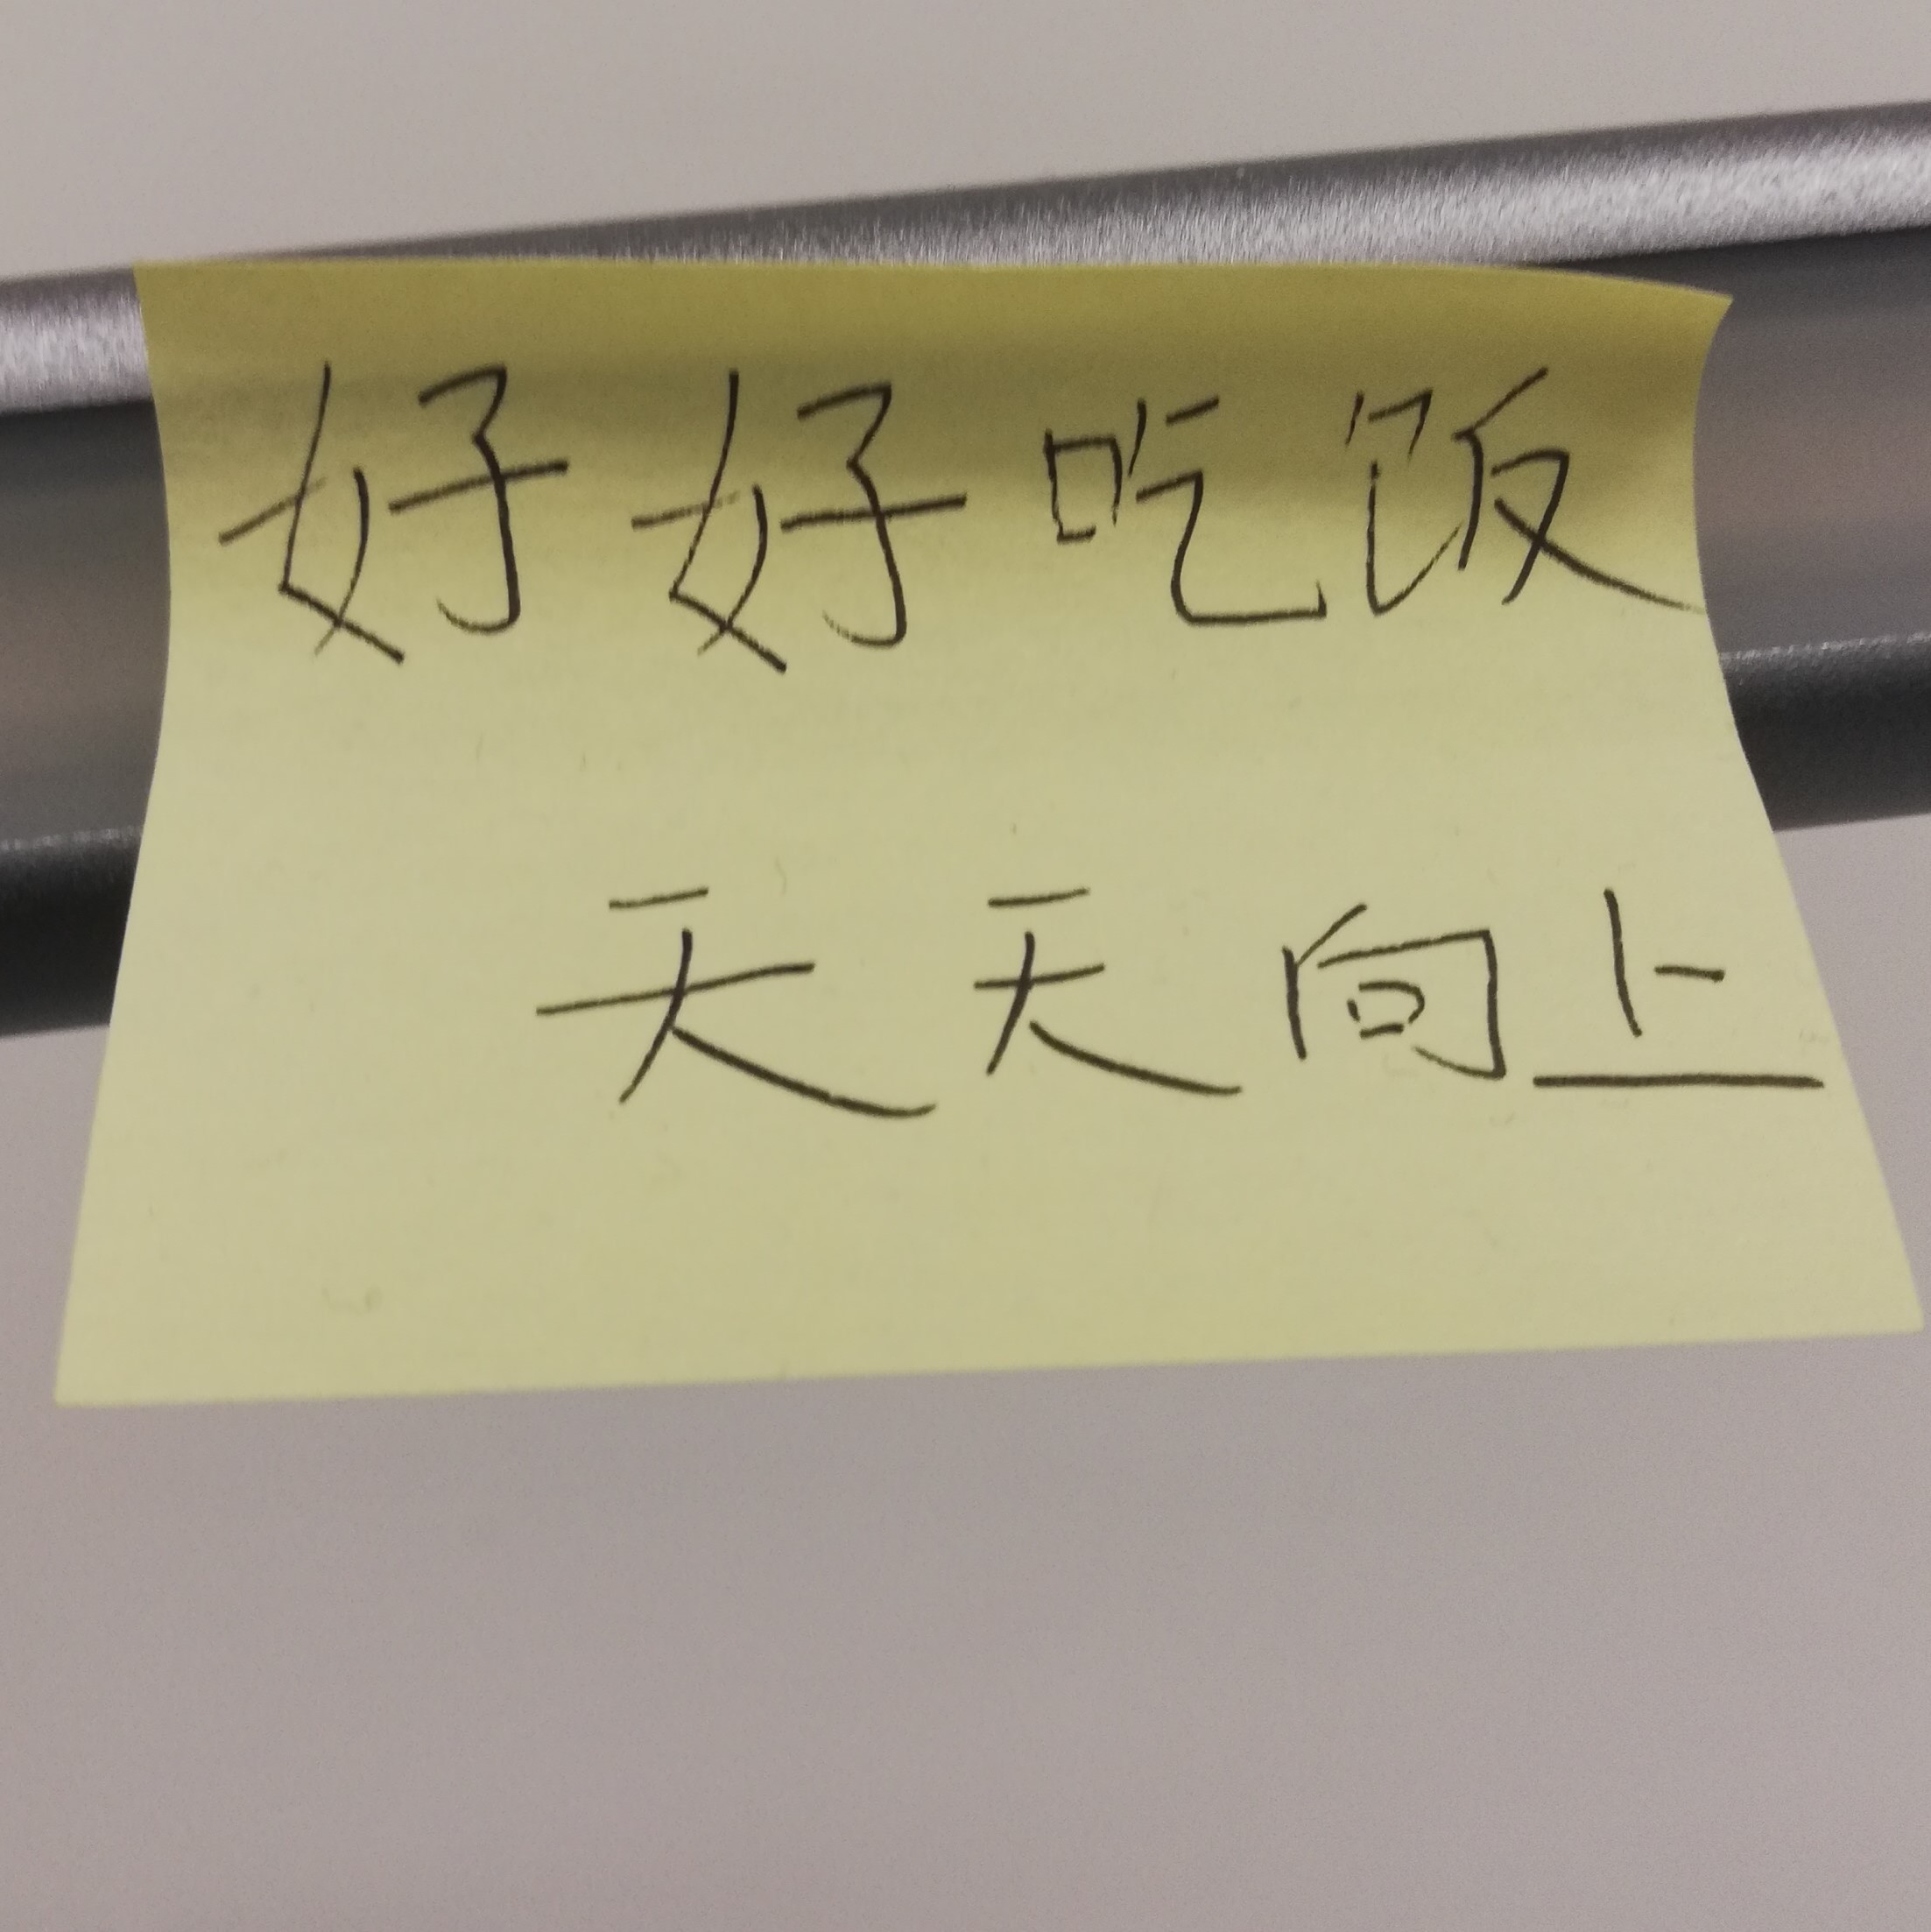 好好吃饭
天天向上